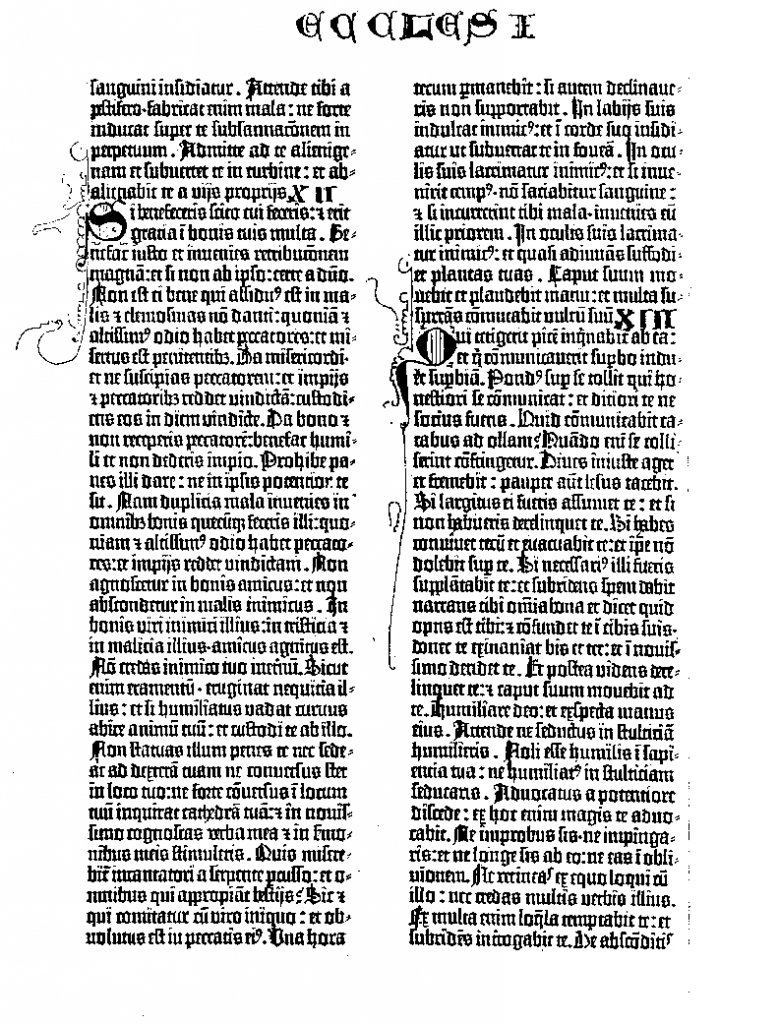 ECCLESI
sanguini insidiatur. Attende tibi a
pestifero·fabricat enim mala: ne forte
inducat super te subsannacōnem in
perpetuum. Admitte ad te alienige-
nam et subvertet te in turbine: et ab-
alienabit te a viis proprijs. XII
Si benefeceris scito cui feceris: ⁊ erit
gratia ī bonis tuis multa. Be-
nefac iusto et invenies retribucōnem
magnā: et si non ab ipso: certe a dño.
Non est ei bene qui assidu⁹ est in ma-
lis ⁊ elemosinas nō danti: quoniā ⁊
altissim⁹ odio habet peccatores: et mi-
sertus est penitentibꝫ. Da misericordi-
et ne suscipias peccatorem: et impijs
⁊ peccatoribꝫ reddet vindictā: custodi-
ens eos in diem vindicte. Da bono ⁊
non receperis peccatorē: benefac humi-
li et non dederis impio. Prohibe pa-
nes illi dare: ne in ipsis potentior te
sit. Nam duplicia mala invenies in
omnibꝫ bonis quecūqꝫ feceris illi: quo-
niam ⁊ altissim⁹ odio habet peccato-
res: et impijs reddet vindictam. Non
agnoscetur in bonis amicus: et non
abscondetur in malis inimicus. In
bonis viri inimici illius: in tristicia ⁊
in malicia illius·amicus agnitus est.
Nō credas inimico tuo ineternū. Sicut
enim eramentū·eruginat nequicia il-
lius: et si humiliatus vadat curvus
abice animū tuū: et custodi te ab illo.
Non statuas illum penes te nec sede-
at ad dexterā tuam ne conversus stet
in loco tuo: ne forte cōversus ī locum
tuū inquirat cathedrā tuā: ⁊ in novis-
simo cognoscas verba mea ⁊ in sermo-
nibus meis stimuleris. Quis misere-
bit̄ incantatori a serpente pcusso: et o-
mnibus qui appropiāt bestijs? Sic ⁊
qui comitatur cū viro iniquo: et ob-
volutus est in peccatis ei⁹. Una hora
tecum pmanebit: si autem declinave-
ris non supportabit. In labijs suis
indulcat inimic⁹: et ī corde suo insidi-
atur ut subvertat te in foveā. In ocu-
lis suis lacrimatur inimic⁹: et si inve-
nerit temp⁹·nō saciabitur sanguine:
⁊ si incurrerint tibi mala·invenies eū
illic priorem. In oculis suis lacrima-
tur inimic⁹: et quasi adiuvās suffodi-
et plantas tuas. Caput suum mo-
vebit et plaudebit manu: et multa su-
surrās cōmutabit vultū suū. XIII
Qui tetigerit picē inqnabit̄ ab ea:
et q̄ cōmunicaverit supbo indu-
et supbiā. Pond⁹ sup se tollit qui ho-
nestiori se cōmunicat: et ditiori te ne
socius fueris. Quid cōmunicabit ca-
cabus ad ollam? Quādo eni se colli-
serint cōfringetur. Dives iniuste aget
et fremebit: pauper aūt lesus tacebit.
Si largitus ei fueris assumet te: et si
non habueris derelinquet te. Si habes
convivet tecū et evacuabit te: et ip̄e nō
dolebit sup te. Si necessari⁹ illi fueris
supplātabit te: et subridens spem dabit
narrans tibi om̄ia bona et dicet quid
opus est tibi: ⁊ cōfundet te ī cibis suis·
donec te exinaniat bis et ter: et ī novis-
simo deridet te. Et postea videns dere-
linquet te: ⁊ caput suum movebit ad
te. Humiliare deo: et exspecta manus
eius. Attende ne seductus in stulticiā
humilieris. Noli esse humilis ī sapi-
encia tua: ne humiliat⁹ in stulticiam
seducaris. Advocatus a potentiore
discede: ex hoc enim magis te advo-
cabit. Ne improbus sis·ne impinga-
ris: et ne longe sis ab eo: ne eas ī obli-
vionem. Ne retineas ex equo loqui cū
illo: nec credas multis verbis illius.
Ex multa enim loqla temptabit te: et
subridēs interogabit te. De abscōditis